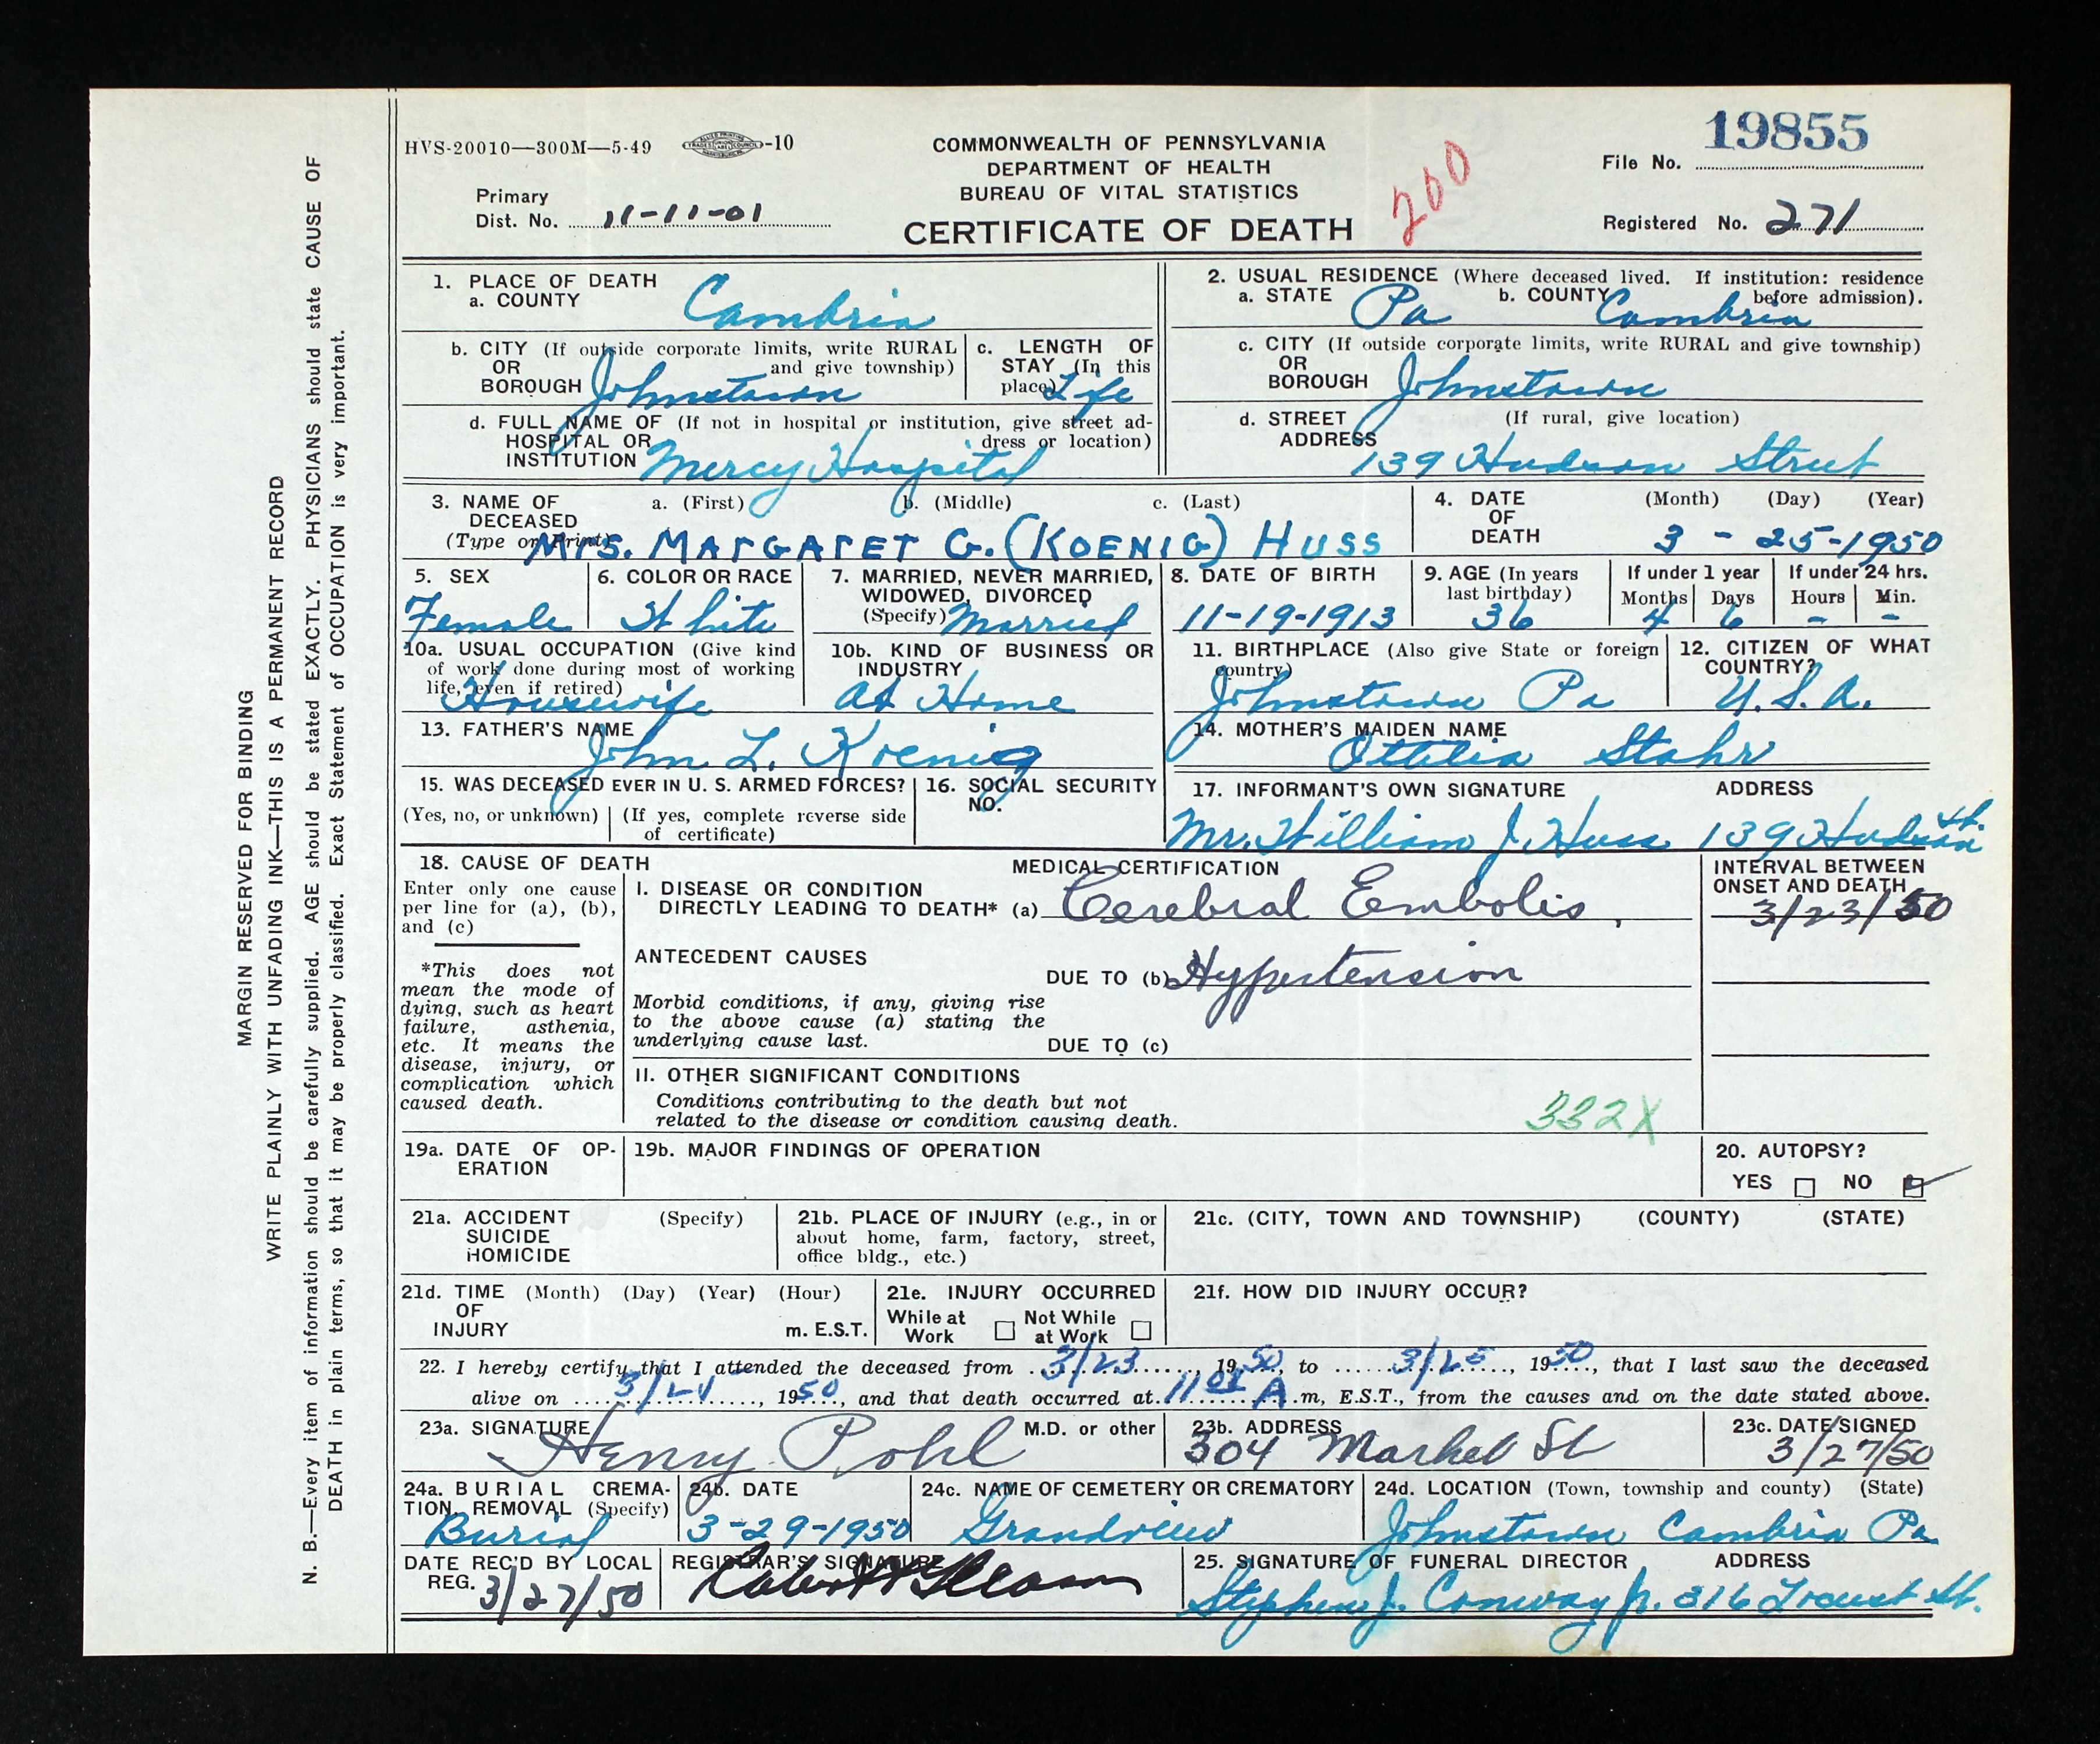 HVS-20010—300M—5-49 -10
COMMONWEALTH OF PENNSYLVANIA
DEPARTMENT OF HEALTH
BUREAU OF VITAL STATISTICS
CERTIFICATE OF DEATH
200
File No. 19855
Primary
Dist. No. 11-11-01
Registered No. 271
MARGIN RESERVED FOR BINDING
WRITE PLAINLY WITH UNFADING INK—THIS IS A PERMANENT RECORD
N. B.—Every item of information should be carefully supplied. AGE should be stated EXACTLY. PHYSICIANS should state CAUSE OF
DEATH in plain terms, so that it may be properly classified. Exact Statement of OCCUPATION is very important.
1. PLACE OF DEATH
a. COUNTY Cambria
2. USUAL RESIDENCE (Where deceased lived. If institution: residence
before admission).
a. STATE Pa b. COUNTY Cambria
b. CITY (If outside corporate limits, write RURAL
OR and give township)
BOROUGH Johnstown
c. LENGTH OF
STAY (In this
place) Life
c. CITY (If outside corporate limits, write RURAL and give township)
OR
BOROUGH Johnstown
d. FULL NAME OF (If not in hospital or institution, give street ad-
HOSPITAL OR dress or location)
INSTITUTION Mercy Hospital
d. STREET (If rural, give location)
ADDRESS 139 Hudson Street
3. NAME OF a. (First) b. (Middle) c. (Last)
DECEASED
(Type or Print) Mrs. MARGARET G. (KOENIG) HUSS
4. DATE (Month) (Day) (Year)
OF
DEATH 3 - 25-1950
5. SEX
Female
6. COLOR OR RACE
White
7. MARRIED, NEVER MARRIED,
WIDOWED, DIVORCED
(Specify) Married
8. DATE OF BIRTH
11-19-1913
9. AGE (In years
last birthday)
36
If under 1 year
Months Days
4 6
If under 24 hrs.
Hours Min.
- -
10a. USUAL OCCUPATION (Give kind
of work done during most of working
life, even if retired)
Housewife
10b. KIND OF BUSINESS OR
INDUSTRY
At Home
11. BIRTHPLACE (Also give State or foreign
country)
Johnstown Pa
12. CITIZEN OF WHAT
COUNTRY?
U.S.A.
13. FATHER'S NAME
John L. Koenig
14. MOTHER'S MAIDEN NAME
Ottilia Stahr
15. WAS DECEASED EVER IN U. S. ARMED FORCES?
(Yes, no, or unknown) (If yes, complete reverse side
of certificate)
16. SOCIAL SECURITY
NO.
17. INFORMANT'S OWN SIGNATURE ADDRESS
Mr. William J. Huss 139 Hudson St.
18. CAUSE OF DEATH
Enter only one cause
per line for (a), (b),
and (c)
*This does not
mean the mode of
dying, such as heart
failure, asthenia,
etc. It means the
disease, injury, or
complication which
caused death.
MEDICAL CERTIFICATION
I. DISEASE OR CONDITION
DIRECTLY LEADING TO DEATH* (a) Cerebral Embolis,
ANTECEDENT CAUSES
DUE TO (b) Hypertension
Morbid conditions, if any, giving rise
to the above cause (a) stating the
underlying cause last.
DUE TO (c)
II. OTHER SIGNIFICANT CONDITIONS
Conditions contributing to the death but not
related to the disease or condition causing death.
332X
INTERVAL BETWEEN
ONSET AND DEATH
3/23/50
19a. DATE OF OP-
ERATION
19b. MAJOR FINDINGS OF OPERATION
20. AUTOPSY?
YES NO
21a. ACCIDENT (Specify)
SUICIDE
HOMICIDE
21b. PLACE OF INJURY (e.g., in or
about home, farm, factory, street,
office bldg., etc.)
21c. (CITY, TOWN AND TOWNSHIP) (COUNTY) (STATE)
21d. TIME (Month) (Day) (Year) (Hour)
OF
INJURY m. E.S.T.
21e. INJURY OCCURRED
While at Work Not While at Work
21f. HOW DID INJURY OCCUR?
22. I hereby certify that I attended the deceased from 3/23, 1950, to 3/25, 1950, that I last saw the deceased
alive on 3/24, 1950, and that death occurred at 11 A.m, E.S.T., from the causes and on the date stated above.
23a. SIGNATURE M.D. or other
Henry Pohl
23b. ADDRESS
304 Market St
23c. DATE SIGNED
3/27/50
24a. BURIAL CREMA-
TION, REMOVAL (Specify)
Burial
24b. DATE
3-29-1950
24c. NAME OF CEMETERY OR CREMATORY
Grandview
24d. LOCATION (Town, township and county) (State)
Johnstown Cambria Pa
DATE REC'D BY LOCAL
REG. 3/27/50
REGISTRAR'S SIGNATURE
25. SIGNATURE OF FUNERAL DIRECTOR ADDRESS
Stephen J. Conway Jr. 316 Locust St.